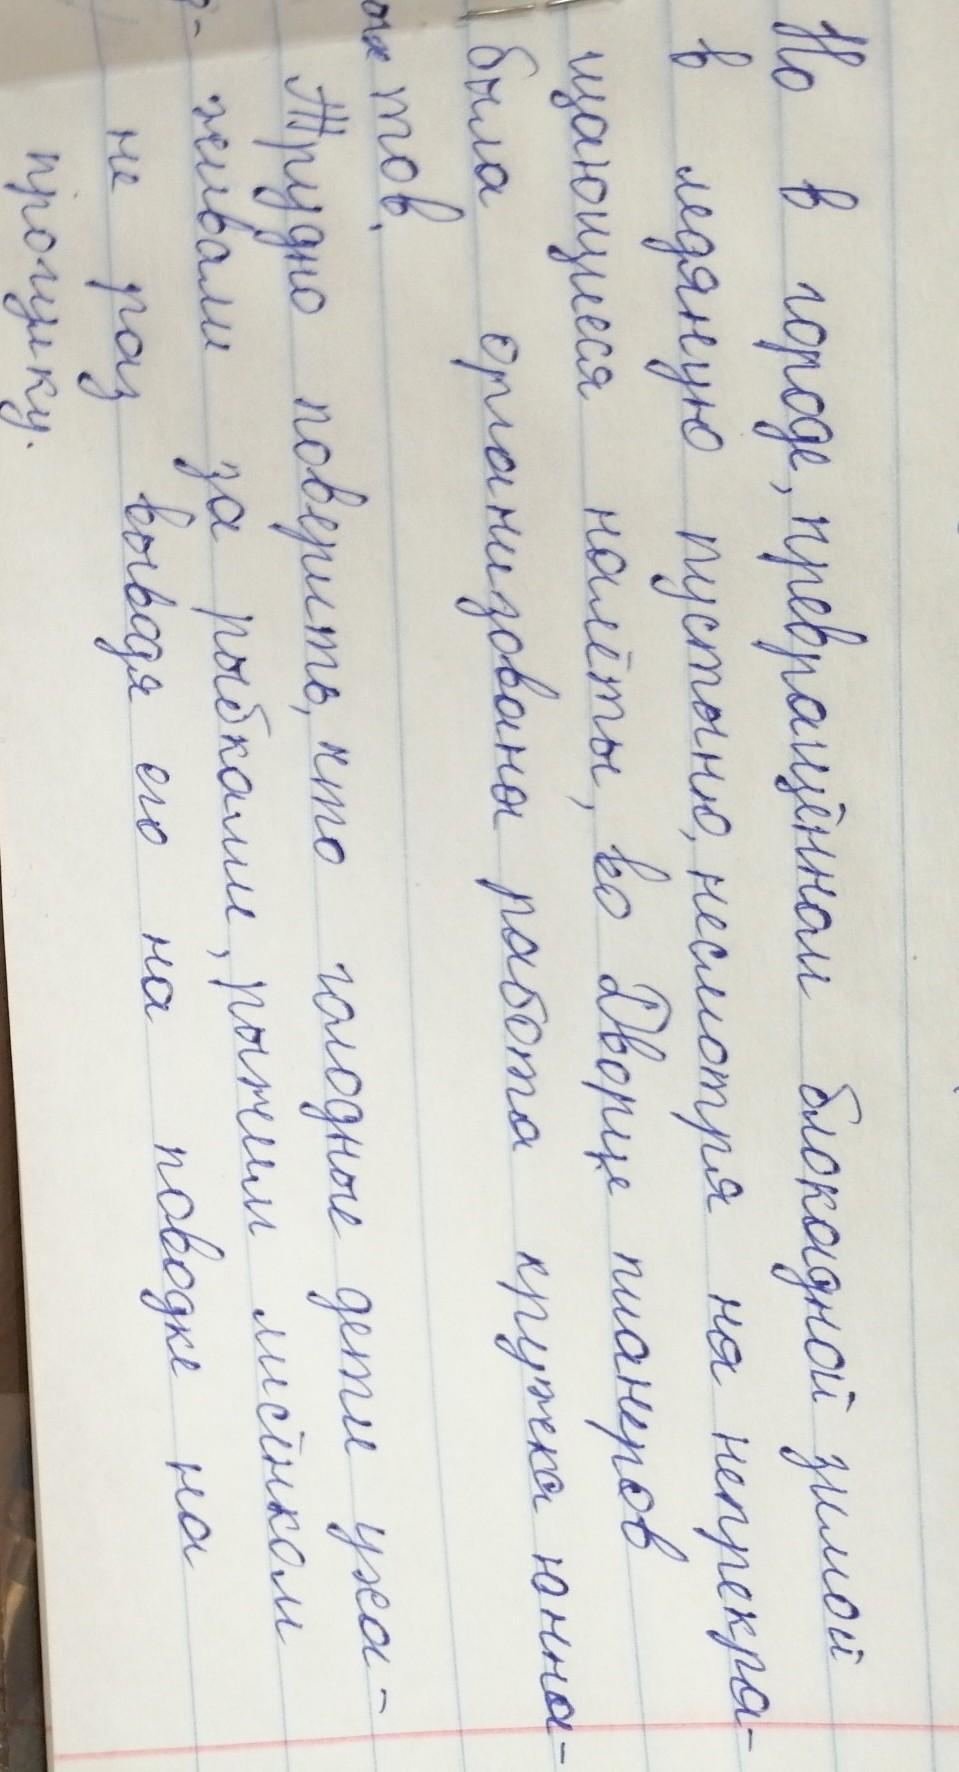 Но в городе, превращённом блокадной зимой
в ледяную пустыню, несмотря на непрекра-
щающиеся налёты, во Дворце пианеров
была организованы работа кружка юнна-
тов.
Трудно поверить, что голодные дети ужа-
живали за рыбками, рыжим лисёнком
не раз вывадя его на поводке на
прогулку.